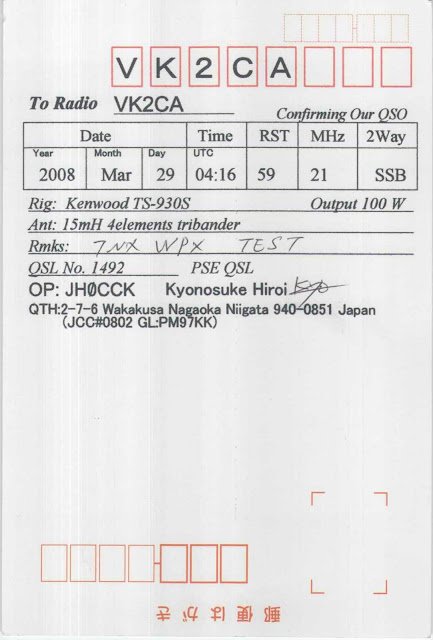 VK2CA
To Radio VK2CA
Confirming Our QSO
Date Time RST MHz 2Way
Year Month Day UTC
2008 Mar 29 04:16 59 21 SSB
Rig: Kenwood TS-930S Output 100 W
Ant: 15mH 4elements tribander
Rmks: TNX WPX TEST
QSL No. 1492 PSE QSL
OP: JHØCCK Kyonosuke Hiroi Kyo
QTH:2-7-6 Wakakusa Nagaoka Niigata 940-0851 Japan
(JCC#0802 GL:PM97KK)
郵便はがき